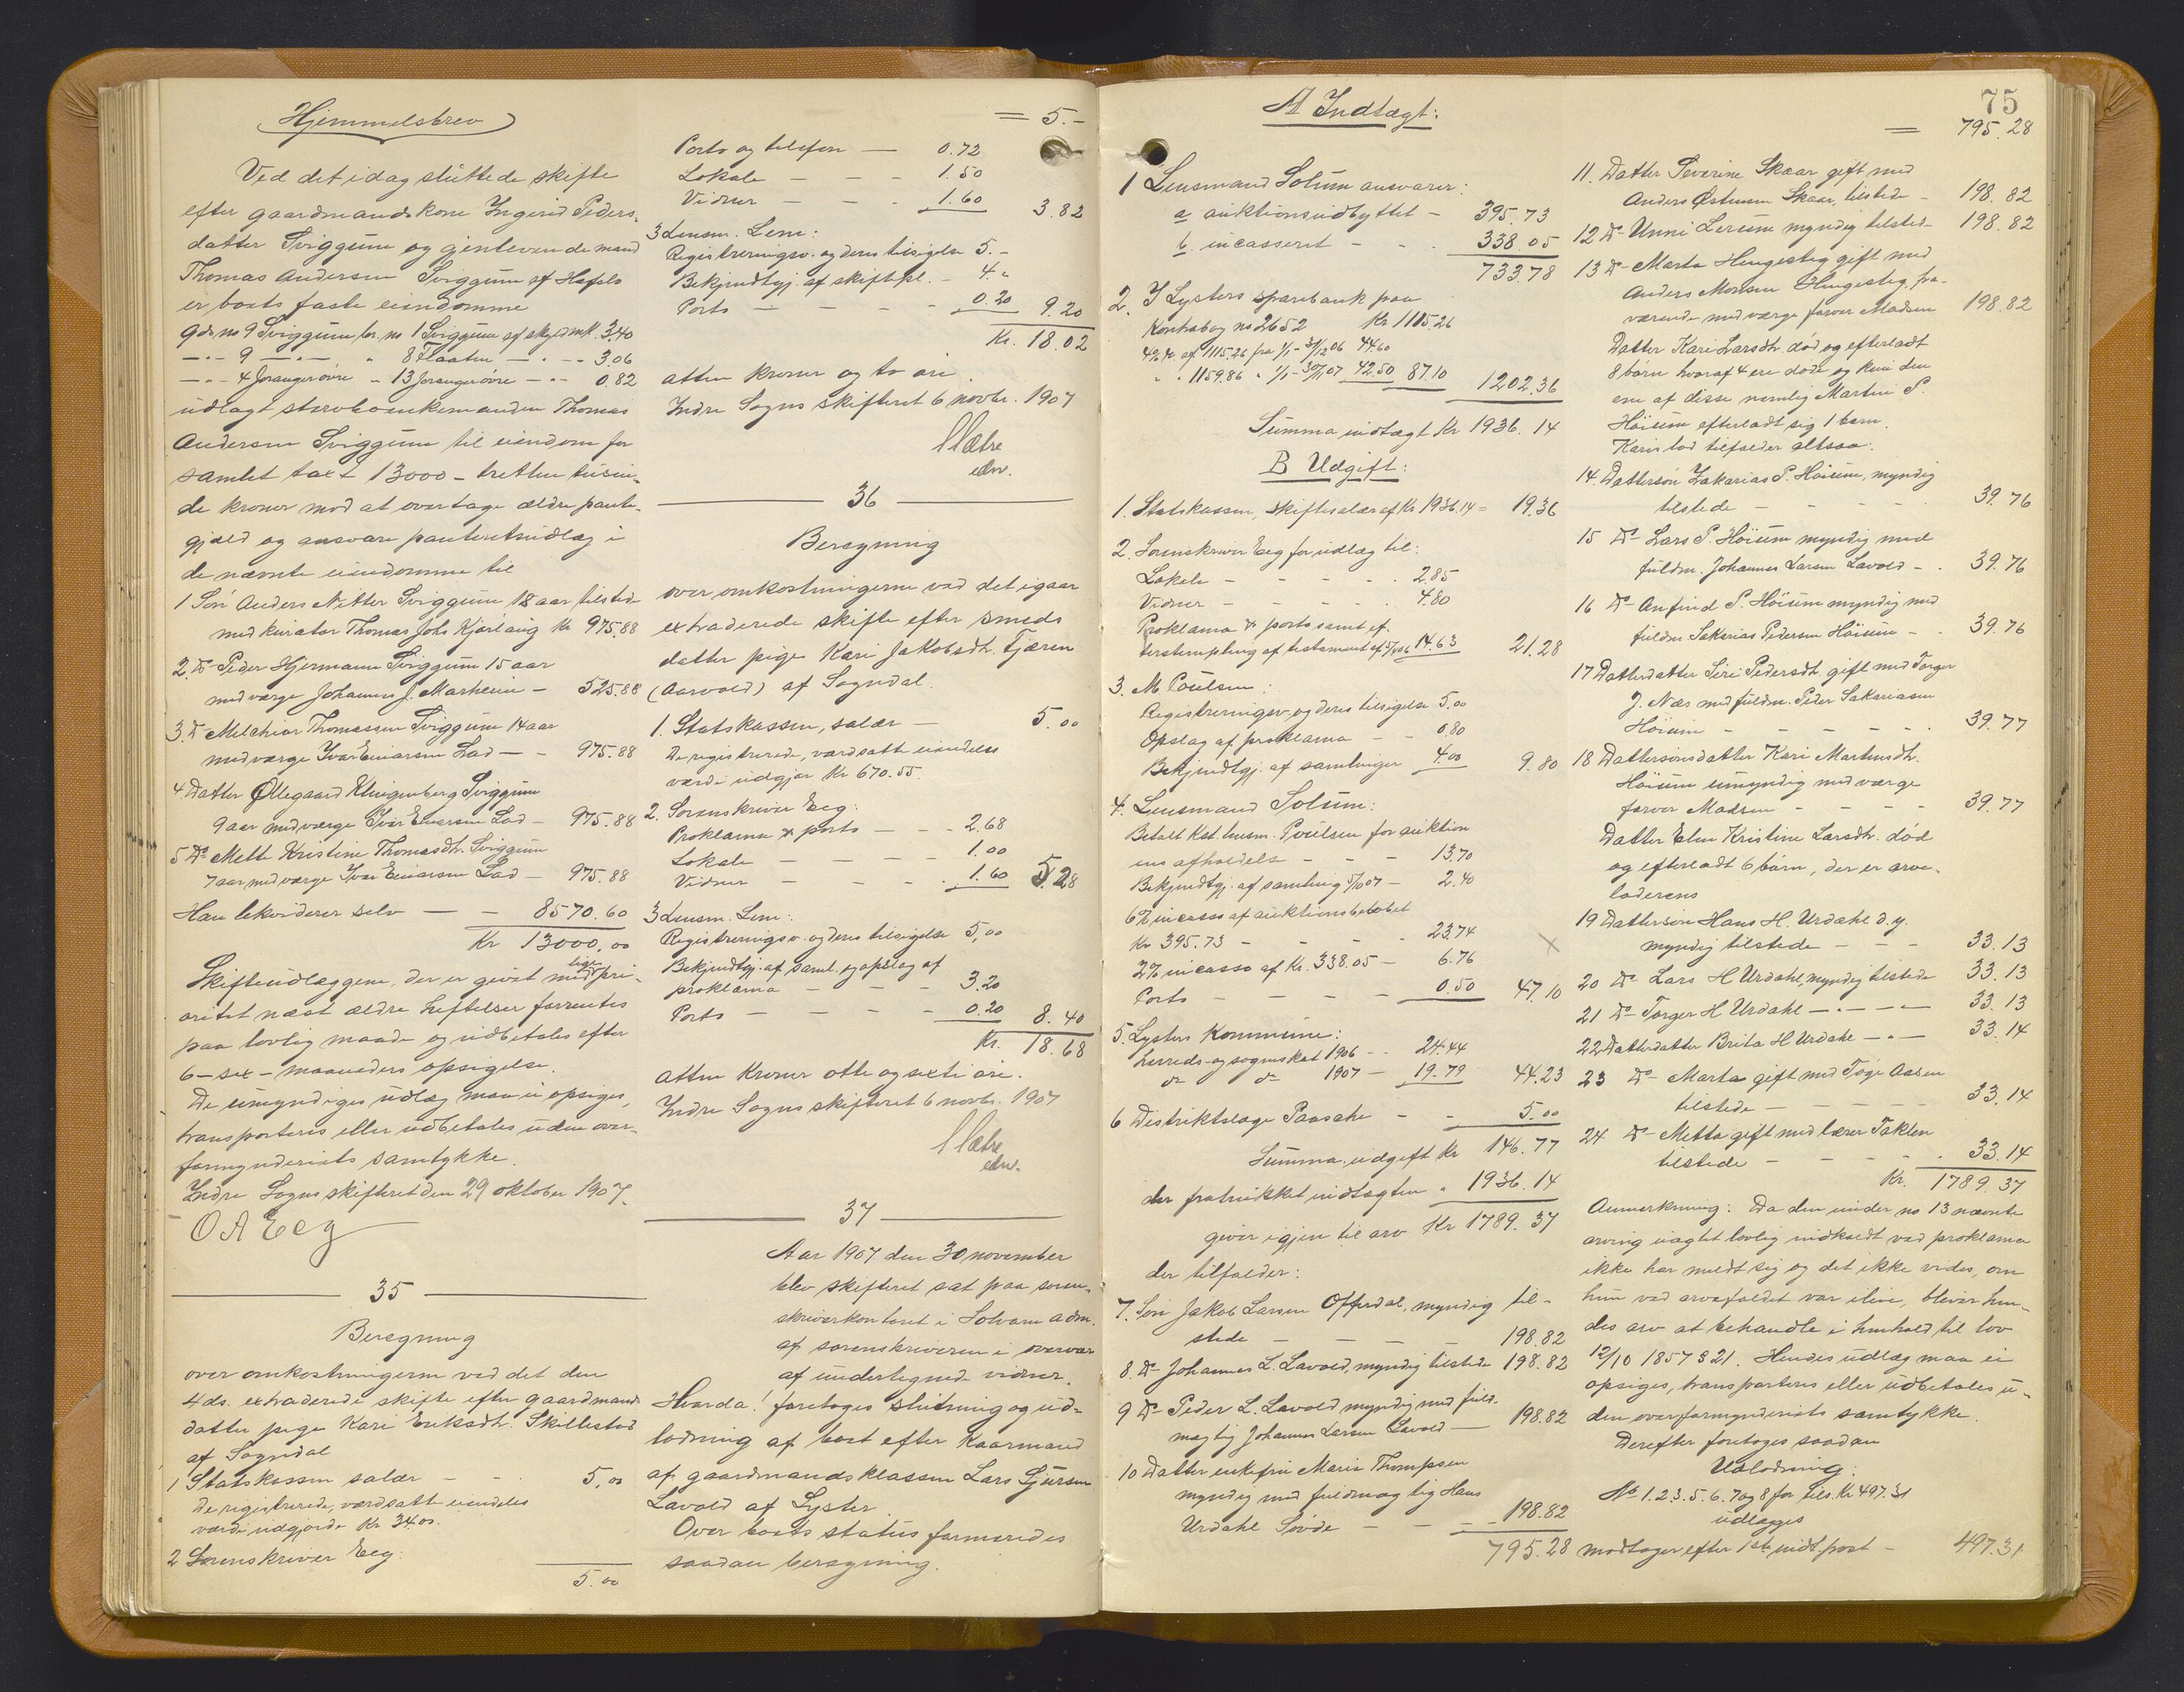 Hjemmelsbrev
Ved det idag sluttede skifte
efter gaardmandskone Ingerid Peders-
datter Sviggum og gjenlevende mand
Thomas Andersen Sviggum af Hafslo
er boets faste eiendomme
gds no 9 Sviggum br. no 1 Sviggum af skyld mk. 3.40
—"— 9 —"— " 8 Flaaten —"— 3.06
—"— 4 Joranger øvre " 13 Joranger øvre —"— 0.82
udlagt stervboenkemanden Thomas
Andersen Sviggum til eiendom for
samlet taxt 13000 - tretten tusin-
de kroner mod at overtage ældre pante-
gjæld og ansvare panteretsudlæg i
de nævnte eiendomme til
1 Søn Anders Nitter Sviggum 18 aar tilstede
med kurator Thomas Johs Kjørlaug kr 975.88
2. Do Peder Hjermann Sviggum 15 aar
med værge Johannes J. Marheim — 525.88
3. Do Melchior Thomassen Sviggum 14 aar
med værge Ivar Einarsen Lad — - 975.88
4 Datter Øllegaard Klingenberg Sviggum
9 aar med værge Ivar Einarsen Lad — 975.88
5 Do Mette Kristine Thomasdtr. Sviggum
7 aar med værge Ivar Einarsen Lad — 975.88
Han likviderer selv — — 8570.60
Kr 13000,00
Skifteudlæggene, der er givet med lige pri-
oritet næst ældre heftelser forrentes
paa lovlig maade og udbetales efter
6 - sex - maaneders opsigelse.
De umyndiges udlæg maa ei opsiges,
transporteres eller udbetales uden over-
formynderiets samtykke.
Indre Sogns skifteret den 29 oktober 1907.
O A Eeg
35
Beregning
over omkostningerne ved det den
4 ds. extraderede skifte efter gaardmands
datter pige Kari Eriksdtr. Skillestad
af Sogndal
1 Statskassen salær — - 5,00
De registrerede, værdsatte eiendeles
værdi udgjorde Kr 34.00.
2 Sorenskriver Eeg:
5.00
= 5.-
Porto og telefon — 0.72
Lokale — — - 1.50
Vidner — — - 1.60 3.82
3 Lensm. Lem:
Registreringsv. og deres tilsigelse 5.-
Bekjendtgj. af skiftepl. - 4.-
Porto — — - - 0.20 9.20
Kr. 18.02
atten kroner og to øre.
Indre Sogns skifteret 6 novbr. 1907
edv.
36
Beregning
over omkostningerne ved det igaar
extraderede skifte efter smeds
datter pige Kari Jakobsdtr. Tjæren
(Aarvold) af Sogndal.
1. Statskassen, salær — 5.00
De registrerede, værdsatte eiendeles
værdi udgjør Kr 670.55.
2. Sorenskriver Eeg:
Proklama & porto — - - 2.68
Lokale — — — - 1.00
Vidner — - - 1.60 5.28
3 Lensm. Lem:
Registreringsv. og deres tilsigelse 5,00
Bekjendtgj. af saml. og opslag af
proklama — - - 3.20
Porto — - - - 0.20 8.40
Kr. 18.68
atten Kroner otte og sexti øre.
Indre Sogns skifteret 6 novbr. 1907
edv.
37
Aar 1907 den 30 november
blev skifteret sat paa soren-
skriverkontoret i Solvorn adm.
af sorenskriveren i overvær
af undertegnede vidner.
Hvorda! foretoges slutning og ud-
lodning af boet efter Kaarmand
af gaardmandsklassen Lars Gjursen
Lavold af Lyster.
Over boets status formeredes
saadan beregning.
75
A Indtægt:
1 Lensmand Solum ansvarer:
a auktionsudbyttet - 395.73
b. incasseret - - . 338.05
733.78
2. I Lysters sparebank paa
Kontrabog no 2652 Kr 1115.26
4% % af 1115.26 fra 1/1 - 31/12 06 44.60
" " 1159.86 " 1/1 - 30/11 07 42.50 87.10 1202.36
Summa indtægt Kr 1936.14
B Udgift:
1. Statskassen, skiftesalær af Kr 1936.14 = 19.36
2. Sorenskriver Eeg for udlæg til:
Lokale - - - - 2.85
Vidner - - - - 4.80
Proklama & porto samt ef-
terstempling af testament af 14.63 21.28
3. M Poulsen:
Registreringsv. og deres tilsigelse 5.00
Opslag af proklama - - 0.80
Bekjendtgj. af samlinger 4.00 9.80
4. Lensmand Solum:
Betalt kst. lensm. Poulsen for auktion
ens afholdelse - - - 13.70
Bekjendtgj. af samling 5/10 07 - 2.40
6% incasso af auktionsbeløbet
Kr 395.73 - - - - 23.74
2% incasso af Kr. 338.05 - 6.76
Porto - - - - 0.50 47.10
5. Lysters Kommune:
herreds- og sogneskat 1906 - - 24.44
do do 1907 - 19.79 44.23
6 Distriktslæge Paasche - - 5.00
Summa udgift Kr 146.77
der fratrukket indtægten " 1936.14
giver igjen til arv Kr 1789.37
der tilfalder:
7. Søn Jakob Larsen Offerdal, myndig til-
stede - - - - 198.82
8. Do Johannes L. Lavold, myndig tilstede 198.82
9 Do Peder L. Lavold myndig med fuld-
mægtig Johannes Larsen Lavold — 198.82
10 Datter enkefru Maria Thompsen
myndig med fuldmægtig Hans
Urdahl Sovde - - - 198.82
795.28
= 795.28
11. Datter Severine Skaar gift med
Anders Østensen Skaar, tilstede - 198.82
12 Do Unni Lerum myndig tilstede 198.82
13 Do Marta Hengesteg gift med
Anders Monsen Hengesteg, fra-
værende med værge farver Madsen 198.82
Datter Kari Larsdtr. død og efterladt
8 børn hvoraf 4 ere døde og kun den
ene af disse nemlig Martin S.
Høium efterladt sig 1 barn.
Karis lod tilfalder altsaa:
14. Dattersøn Zakarias P. Høium, myndig
tilstede - - - - 39.76
15 Do Lars P. Høium myndig med
fuldm. Johannes Larsen Lavold - . 39.76
16 Do Anfind P. Høium myndig med
fuldm Sakarias Pedersen Høium - . 39.76
17 Datterdatter Siri Pedersdtr. gift med Torger
J. Næs med fuldm. Peder Sakariasen
Høium - - - - 39.77
18 Dattersønsdatter Kari Martinsdtr.
Høium umyndig med værge
farver Madsen - - - - 39.77
Datter Elen Kristine Larsdtr. død
og efterladt 6 børn, der er arve-
laderens
19 Dattersøn Hans H. Urdahl d.y.
myndig tilstede - - - 33.13
20 Do Lars H Urdahl, myndig tilstede 33.13
21 Do Torger H Urdahl —"— — 33.13
22 Datterdatter Brita H Urdahl —"— 33.14
23 Do Marta gift med Tøge Aasen
tilstede - - - - 33.14
24 Do Metta gift med lærer Taklen
tilstede - - - - 33.14
Kr. 1789.37
Anmerkning: Da den under no 13 nævnte
arving uagtet lovlig indkaldt ved proklama
ikke har meldt sig og det ikke vides, om
hun ved arvefaldet var ilive, bliver hen-
des arv at behandle i henhold til lov
12/10 1857 § 21. Hendes udlæg maa ei
opsiges, transporteres eller udbetales u-
den overformynderiets samtykke.
Derefter foretoges saadan
Udlodning:
No 1.2.3.5.6.7 og 8 for tils. Kr 497.31
udlægges
modtager efter 1ste indt. post - 497.31